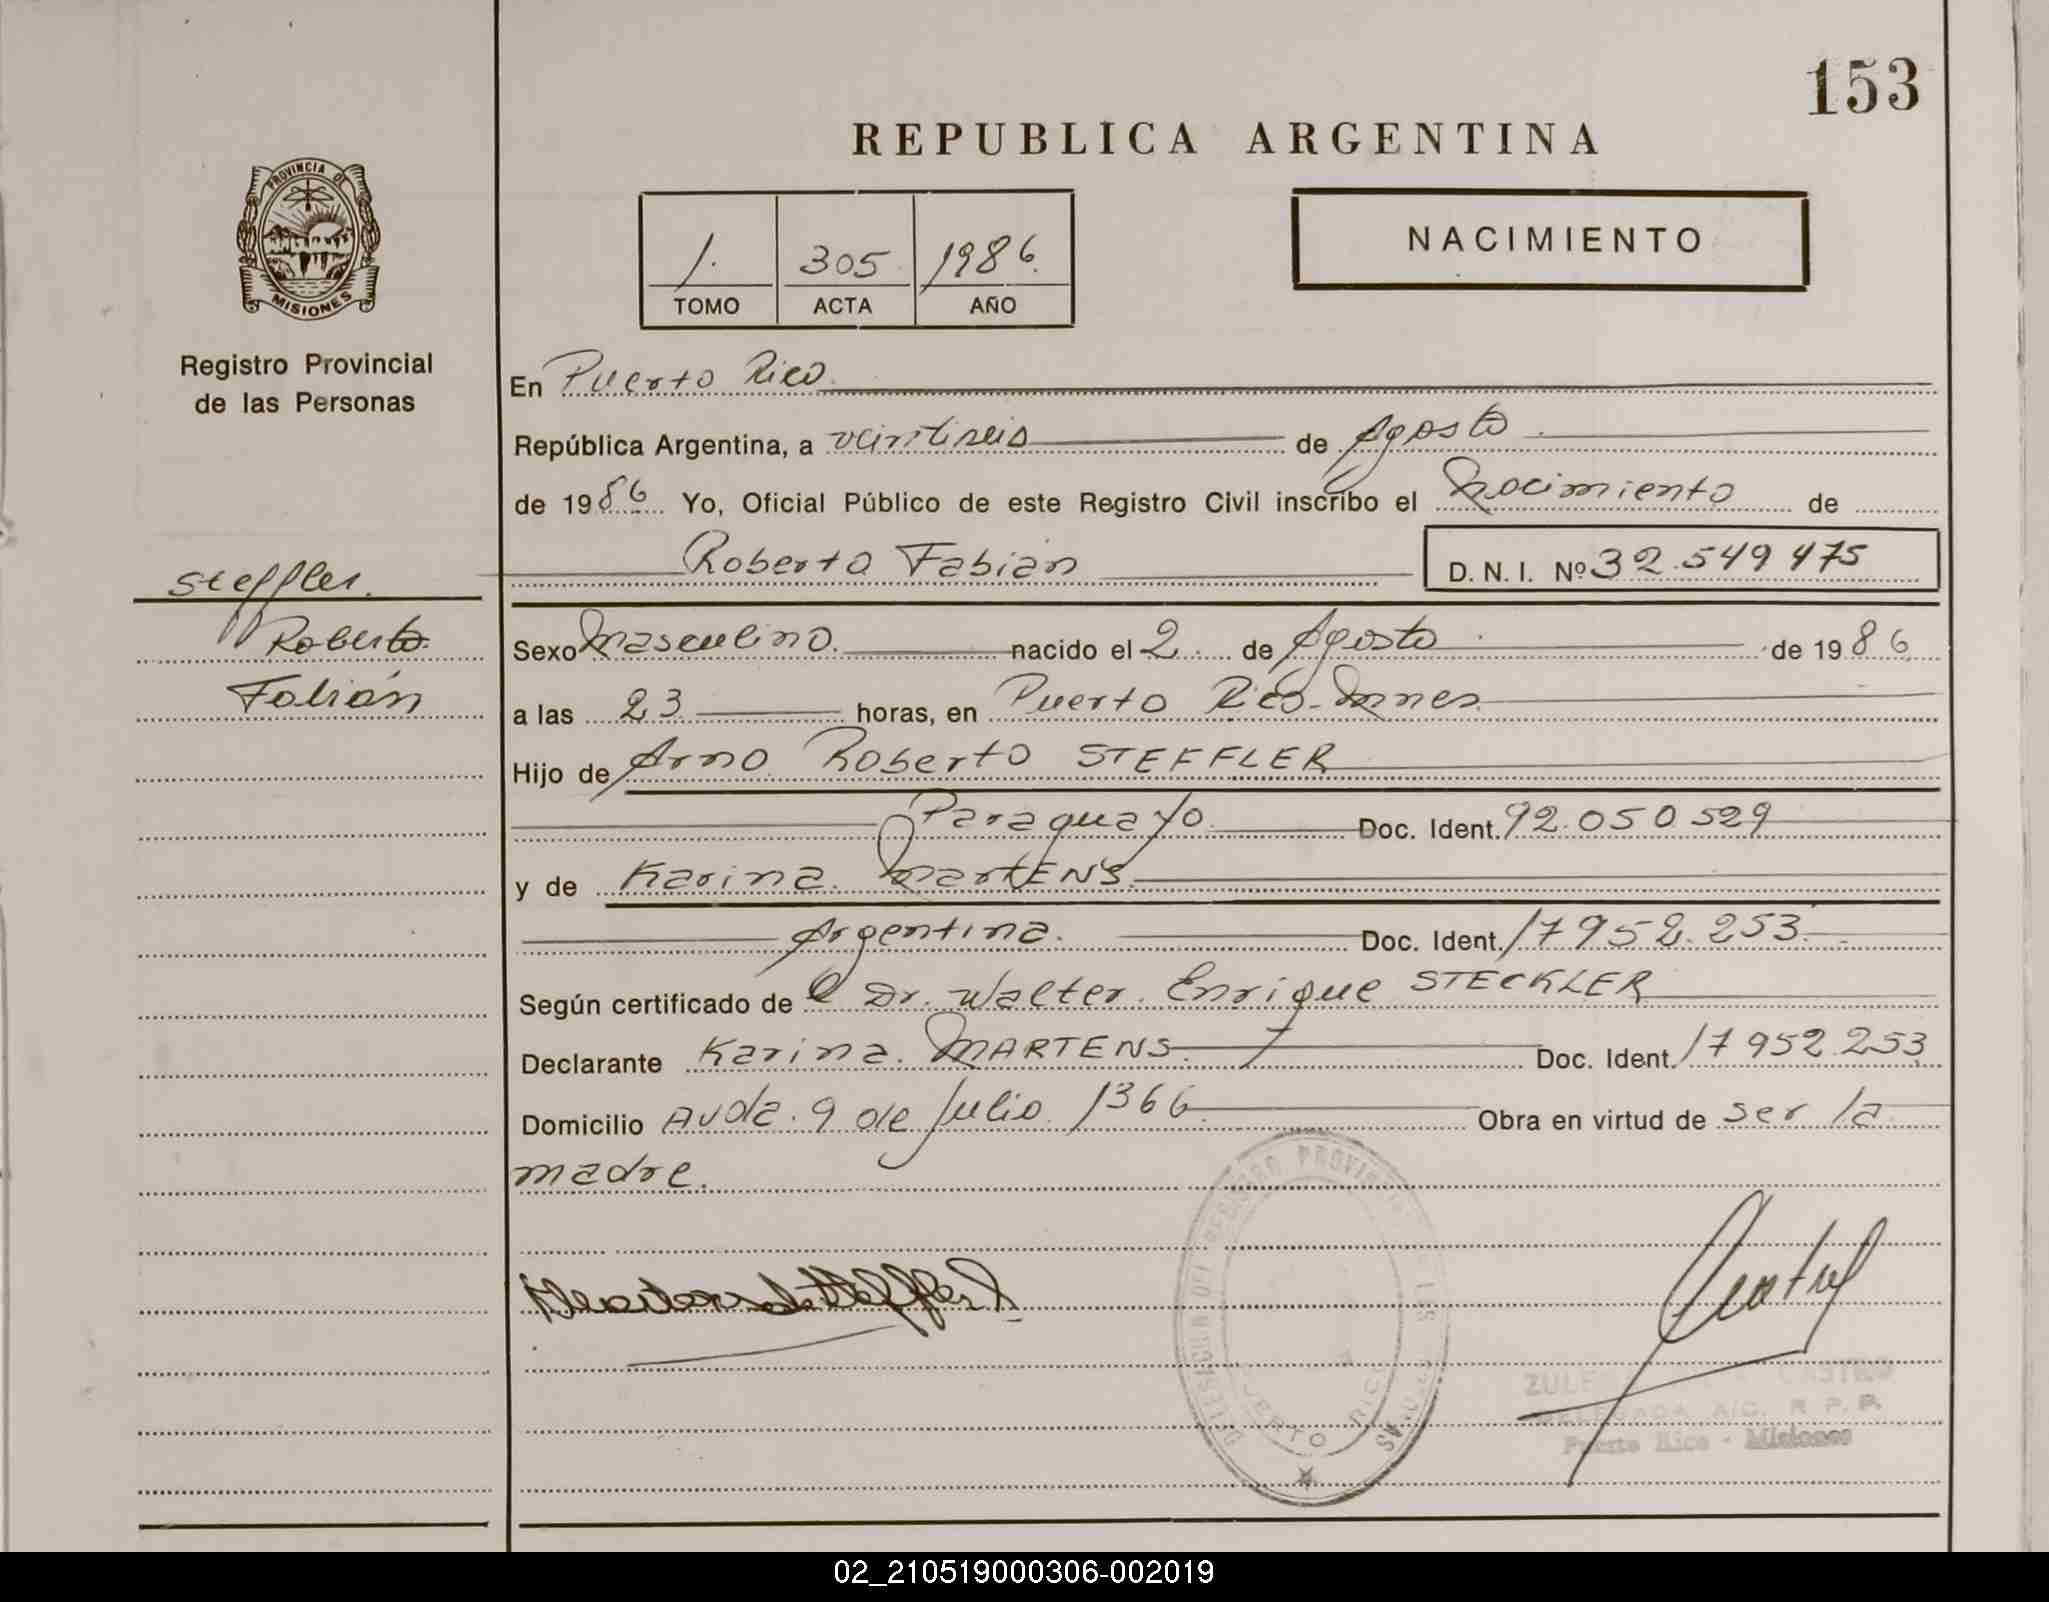 153
REPUBLICA ARGENTINA
PROVINCIA DE
MISIONES
1. 305 1986.
TOMO ACTA AÑO
NACIMIENTO
Registro Provincial
de las Personas
En Puerto Rico
República Argentina, a veintiseis de Agosto
de 1986 Yo, Oficial Público de este Registro Civil inscribo el Nacimiento de
Roberto Fabián D. N. I. Nº 32.549 475
Steffler.
Roberto
Fabián
Sexo Masculino. nacido el 2 de Agosto de 1986
a las 23 horas, en Puerto Rico-Mnes.
Hijo de Arno Roberto STEFFLER
Paraguayo Doc. Ident. 92.050.529
y de Karina MartENS.
Argentina. Doc. Ident. 17 952.253.
Según certificado de el Dr. Walter Enrique STECKLER
Declarante Karina MARTENS. Doc. Ident. 17 952.253
Domicilio Avda. 9 de Julio 1366 Obra en virtud de ser la
madre.
DELEGACION DEL REGISTRO PROVINCIAL DE LAS PERSONAS
PUERTO RICO
CASTRO
DELEGADA A/C. R. P. P.
Puerto Rico - Misiones
02_210519000306-002019